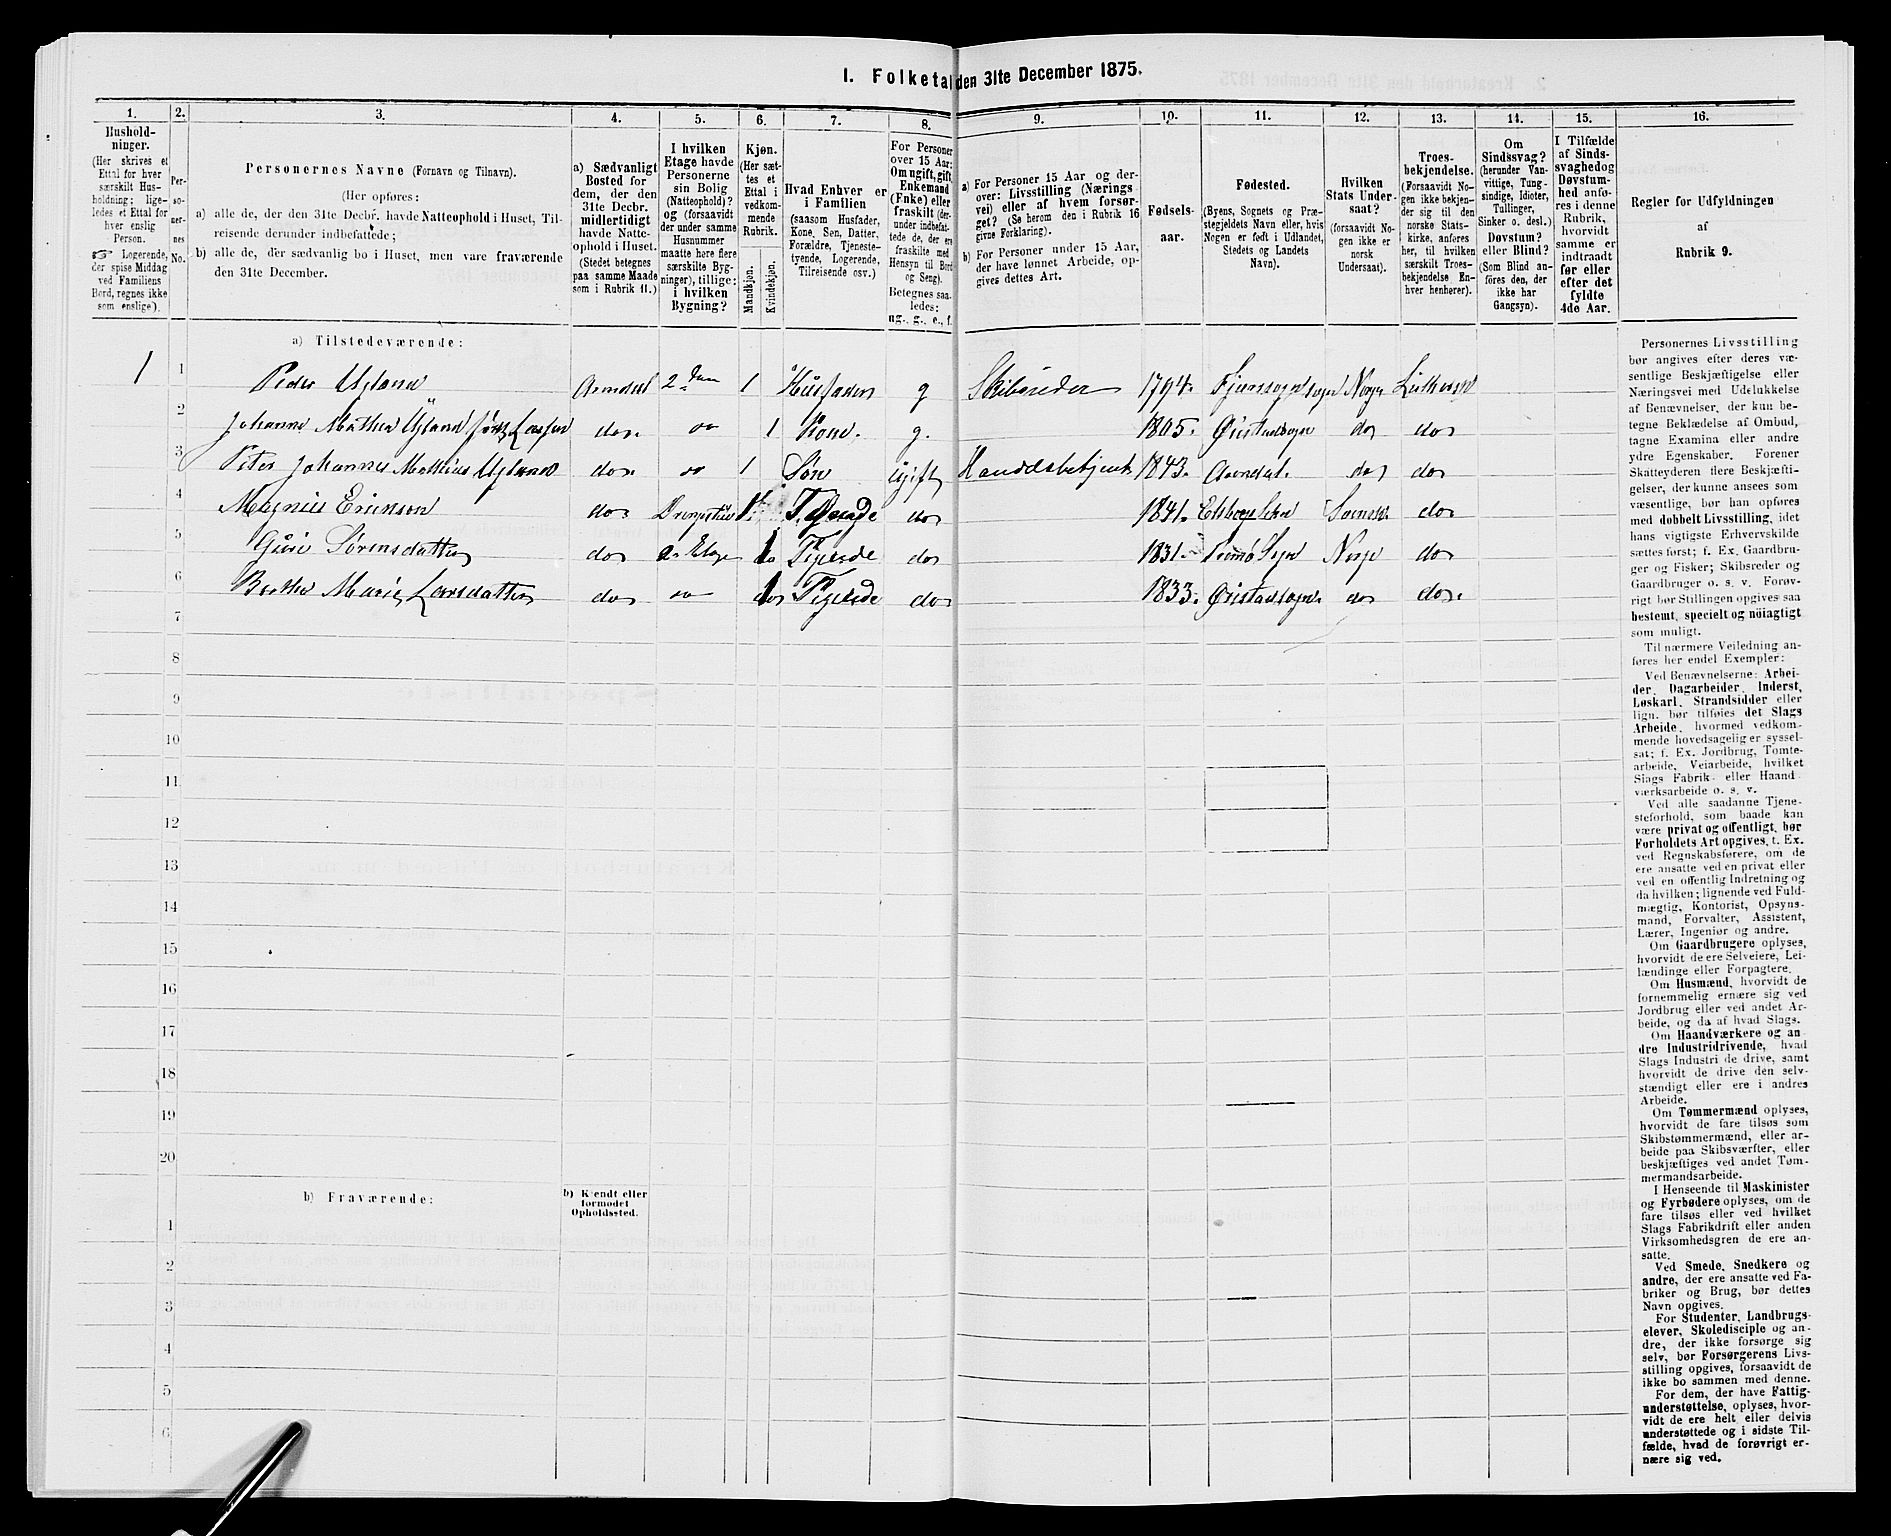 I. Folketal den 31te December 1875.
1.
2.
3.
4.
5.
6.
7.
8.
9.
10.
11.
12.
13.
14.
15.
16.
Hushold-
ninger.
(Her skrives et
Ettal for hver
særskilt Hus-
holdning; lige-
ledes et Ettal for
hver enslig
Person.
☞ Logerende,
der spise Middag
ved Familiens
Bord, regnes ikke
som enslige).
Per-
so-
ner-
nes
No.
Personernes Navne (Fornavn og Tilnavn).
(Her opføres:
a) alle de, der den 31te Decbr. havde Natteophold i Huset, Til-
reisende derunder indbefattede;
b) alle de, der sædvanlig bo i Huset, men vare fraværende
den 31te December.
a) Sædvanligt
Bosted for
dem, der den
31te Decbr.
midlertidigt
havde Natte-
ophold i Huset.
(Stedet betegnes
paa samme Maade
som i Rubrik 11.)
I hvilken
Etage havde
Personerne
sin Bolig
(Natteophold)?
og (forsaavidt
der under samme
Husnummer
maatte høre flere
særskilte Byg-
ninger), tillige:
i hvilken
Bygning?
Kjøn.
(Her sæt-
tes et
Ettal i
vedkom-
mende
Rubrik.
Mandkjøn.
Kvindekjøn.
Hvad Enhver er
i Familien
(saasom Husfader,
Kone, Søn, Datter,
Forældre, Tjeneste-
tyende, Logerende,
Tilreisende osv.)
For Personer
over 15 Aar:
Om ugift, gift,
Enkemand
(Enke) eller
fraskilt (der-
under indbefat-
tede de, der ere
fraskilte med
Hensyn til Bord
og Seng).
Betegnes saa-
ledes:
ug., g., e., f.
a) For Personer 15 Aar og der-
over: Livsstilling (Nærings-
vei) eller af hvem forsør-
get? (Se herom den i Rubrik 16
givne Forklaring).
b) For Personer under 15 Aar,
der have lønnet Arbeide, op-
gives dettes Art.
Fødsels-
aar.
Fødested.
(Byens, Sognets og Præ-
stegjeldets Navn eller, hvis
Nogen er født i Udlandet,
Stedets og Landets
Navn).
Hvilken
Stats Under-
saat?
(forsaavidt No-
gen ikke er
norsk
Undersaat).
Troes-
bekjendelse.
(Forsaavidt No-
gen ikke bekjen-
der sig til den
norske Stats-
kirke, anføres
her, til hvilken
særskilt Troes-
bekjendelse En-
hver henhører).
Om
Sindssvag?
(herunder Van-
vittige, Tung-
sindige, Idioter,
Tullinger,
Sinker o. desl.)
Døvstum?
eller Blind?
(Som Blind an-
føres den, der
ikke har
Gangsyn).
I Tilfælde
af Sinds-
svaghed og
Døvstum-
hed anfø-
res i denne
Rubrik,
hvorvidt
samme er
indtraadt
før eller
efter det
fyldte
4de Aar.
Regler for Udfyldningen
af
Rubrik 9.
a) Tilstedeværende:
1 1 Peder Ugland Arendal 2 1 Husfader g Skibsreder 1794. Norge Luthersk
2 Johanne Mathea Ugland født Lassen do. do 1 Kone. g. 1805. Øiestadsogn do do
3 Peter Johannes Mathias Ugland do. do 1 Søn Ugift 1843. Arendal. do do
4 Magnus Erikson do Drengestue 1 do 1841. Svensk do
5 Guri Sørensdatter do 2 Etage 1 do 1831. Tromø Sogn Norge do
6 Berthe Marie Larsdatter do do 1 do 1833. Øiestadsogn. do do.
7
8
9
10
11
12
13
14
15
16
17
18
19
20
b) Fraværende:
b) Kjendt eller
formodet
Opholdssted.
1
2
3
4
5
6
Personernes Livsstilling
bør angives efter deres væ-
sentlige Beskjæftigelse eller
Næringsvei med Udelukkelse
af Benævnelser, der kun be-
tegne Beklædelse af Ombud,
tagne Examina eller andre
ydre Egenskaber. Forener
Skatteyderen flere Beskjæfti-
gelser, der kunne ansees som
væsentlige, bør han opføres
med dobbelt Livsstilling, idet
hans vigtigste Erhvervskilde
sættes først; f. Ex. Gaardbru-
ger og Fisker; Skibsreder og
Gaardbruger o. s. v. Forøv-
rigt bør Stillingen opgives saa
bestemt, specielt og nöiagtigt
som muligt.
Til nærmere Veiledning an-
føres her endel Exempler:
Ved Benævnelserne: Arbei-
der, Dagarbeider, Inderst,
Løskarl, Strandsidder eller
lign. bør tilføies det Slags
Arbeide, hvormed vedkom-
mende hovedsagelig er syssel-
sat; f. Ex. Jordbrug, Tomte-
arbeide, Veiarbeide, hvilket
Slags Fabrik- eller Haand-
værksarbeide o. s. v.
Ved alle saadanne Tjene-
steforhold, som baade kan
være privat og offentligt, bør
Forholdets Art opgives, t. Ex.
ved Regnskabsførere, om de
ere ansatte ved en privat eller
ved en offentlig Indretning og
da hvilken; lignende ved Fuld-
mægtig, Kontorist, Opsyns-
mand, Forvalter, Assistent,
Lærer, Ingeniør og andre.
Om Gaardbrugere oplyses,
hvorvidt de ere Selveiere, Lei-
lændinge eller Forpagtere.
Om Husmænd, hvorvidt de
fornemmelig ernære sig ved
Jordbrug eller ved andet Ar-
beide, og da af hvad Slags.
Om Haandværkere og an-
dre Industridrivende, hvad
Slags Industri de drive, samt
hvorvidt de drive den selv-
stændigt eller ere i andres
Arbeide.
Om Tømmermænd oplyses,
hvorvidt de fare tilsøs som
Skibstømmermænd, eller ar-
beide paa Skibsværfter, eller
beskjæftiges ved andet Tøm-
mermandsarbeide.
I Henseende til Maskinister
og Fyrbødere oplyses, om de
fare tilsøs eller ved hvilket
Slags Fabrikdrift eller anden
Virksomhedsgren de ere an-
satte.
Ved Smede, Snedkere og
andre, der ere ansatte ved Fa-
briker og Brug, bør dettes
Navn opgives.
For Studenter, Landbrugs-
elever, Skoledisciple og an-
dre, der ikke forsørge sig
selv, bør Forsørgerens Livs-
stilling opgives, forsaavidt de
ikke bo sammen med denne.
For dem, der have Fattig-
understøttelse, oplyses, hvor-
vidt de ere helt eller delvis
understøttede og i sidste Til-
fælde, hvad de forøvrigt er-
nære sig ved.